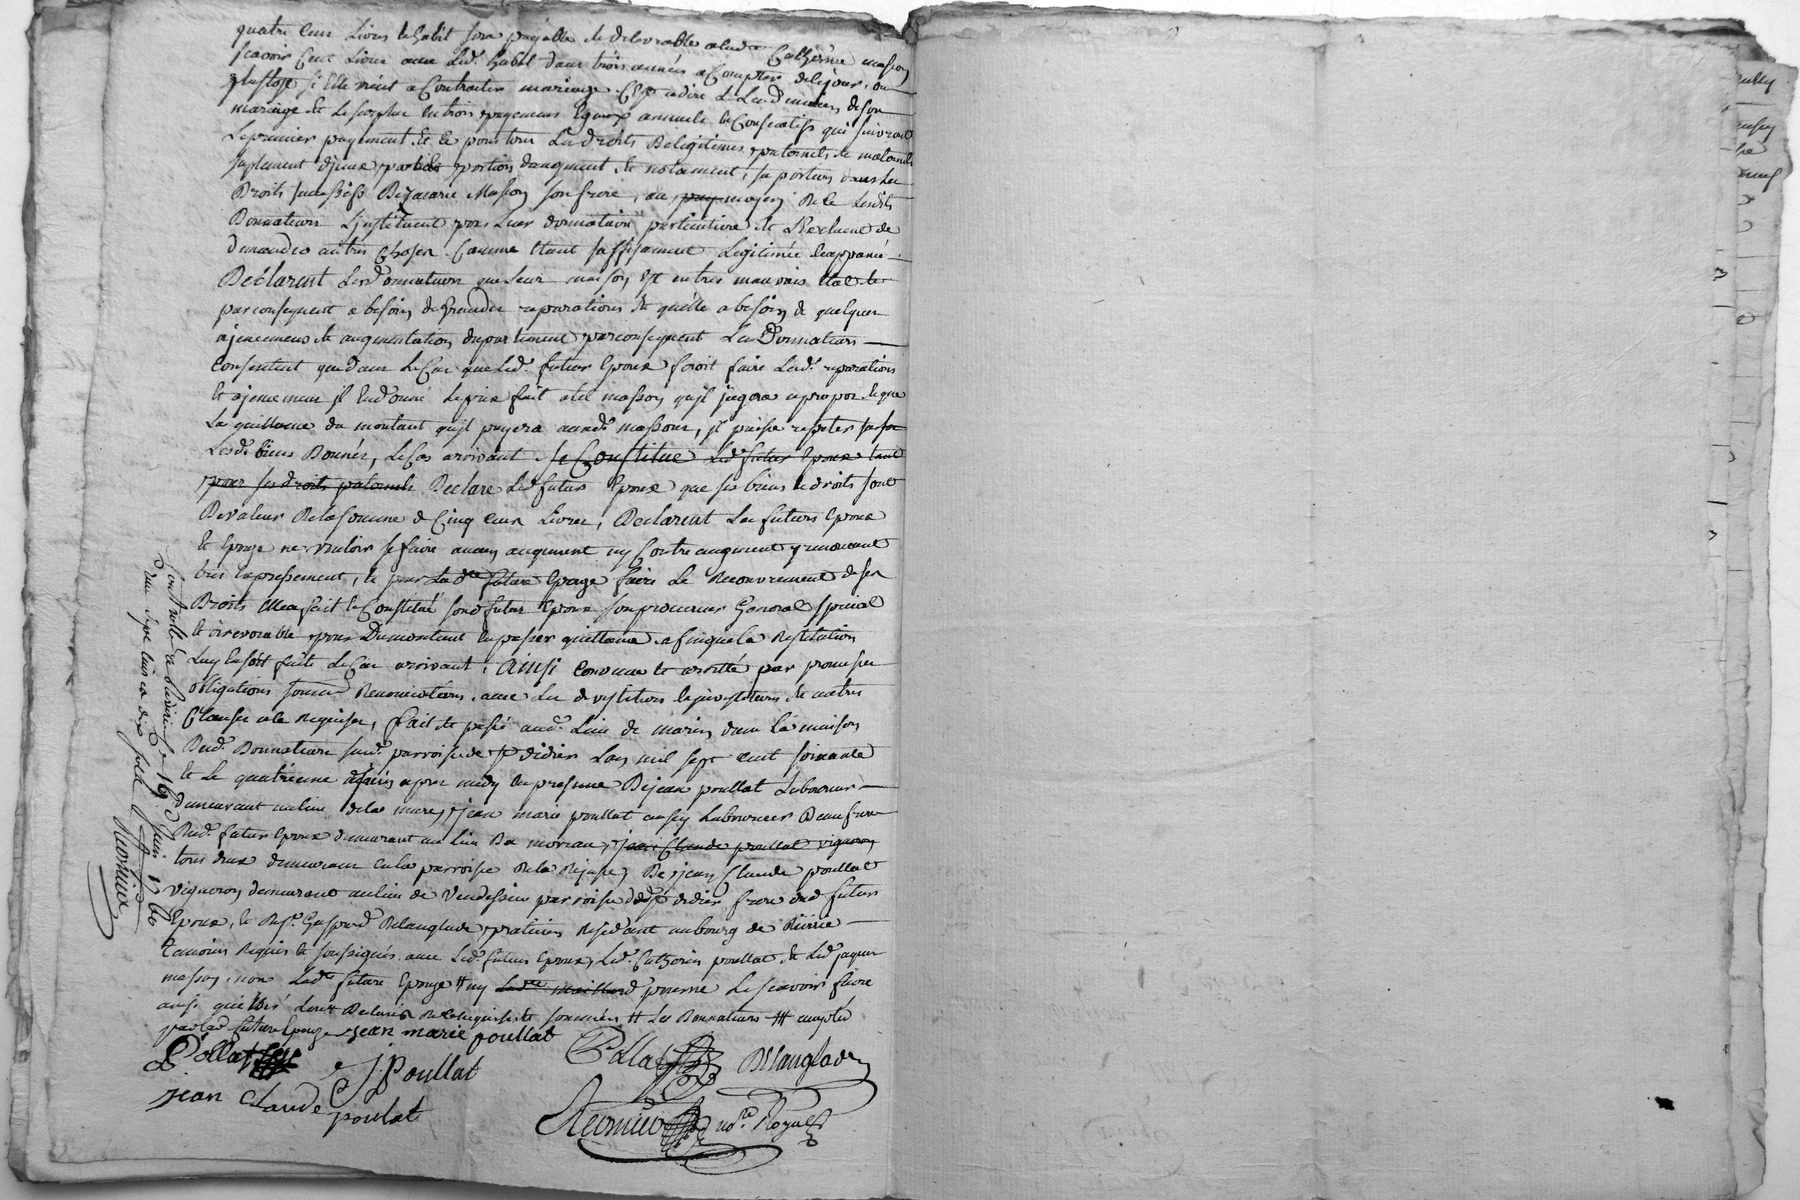 quatre cent Livres lhabit sera payable et delivrable alad.e Catherine masson
scavoir Cent Livres avec Led. habit dans trois années a Compter de ce jour, ou
plustost si Elle vient a Contracter mariage C'est adire Le Lendemain de son
mariage et Le surplus en trois payemens Egaux annuels et Consecutifs qui suivront
Le premier payement et ce pour tous Les droits De legitimes paternels et maternels
suplement d'jceux, portion daugment, et notament sa portion dans Les
Droits successifs De Zacarie Masson son frere, au pay moyen De ce Lesdits
Donnateurs L'jnstituent pour Leur donnataire particuliere et L'Excluent de
demander autres choses Comme Etant suffisament Legitimée et appanné
Declarent Lesd. Donnateurs que Leur maison Est en tres mauvais Etat et
par consequent a besoin de Grandes reparations et quelle a besoin de quelques
ajencemens et augmentation dapartement par consequent Les Donnateurs
Consentent que dans Le Cas que Led. futur Epoux feroit faire Lesd. reparations
Et ajencemens il En donne Le prix fait a tel masson qu'jl jugera apropos et que
La quittance du montant qu'jl payera auxd. massons, jl puisse repeter sur
Lesd. biens Donnés, Le Cas arrivant. se Constitue Led. futur Epoux tant
pour ses droits paternels Declare Led. futur Epoux que ses biens et droits sont
De valeur De la somme de Cinq cens Livres, Declarent Les futurs Epoux
Et Epouze ne vouloir se faire aucun augment ny Contre augment y renoncant
tres Expressement, et pour Lad.te future Epouze faire Le Recouvrement de ses
Droits Elle a fait et Constitué sond. futur Epoux son procureur General special
et irrevocable pour Du montant En passer quittance afin que la Restitution
Luy En soit faite Le Cas arrivant. Ainsi Convenu et arreté par promesses
obligations soumis. Renonciations avec Les devestitures et jnvestitures et autres
Clauses a ce Requises, fait et passé aud. Lieu de marin dans La maison
Desd. Donnateurs sud. parroisse de St. didier Lan mil sept cent soixante
Et Le quatrieme juin apres midy En presence De jean poullat Laboureur
demeurant au lieu de la mure, jean marie poullat aussy Laboureur Beaufrere
Dud. futur Epoux demeurant au Lieu De moriau, jean Claude poullat vigneron
tous deux demeurans En la parroisse De la Rajasse, De jean Claude poullat
vigneron demeurant au lieu de Vendessieu parroisse dud. St. didier frere dud. futur
Epoux, et De Sr. Gaspard Delanglade praticien Residant au bourg de Riverie
temoins Requis et soussignés avec Led. futur Epoux, Led. Catherin poullat et Led. jaques
masson, non Lad.te future Epouze # ny Lad.te maillard pourne Le scavoir faire
ainsi qu'ils ont Declarés De Ce Enquis et sommés # Les Donnateurs # accepté
par lad. future Epouze jean marie poullat
Pollat J Poullat Pollat Delanglade
jean Claude poulat Reomieu no.re Royal
Controllé a Riverie Le 16 juin 1760